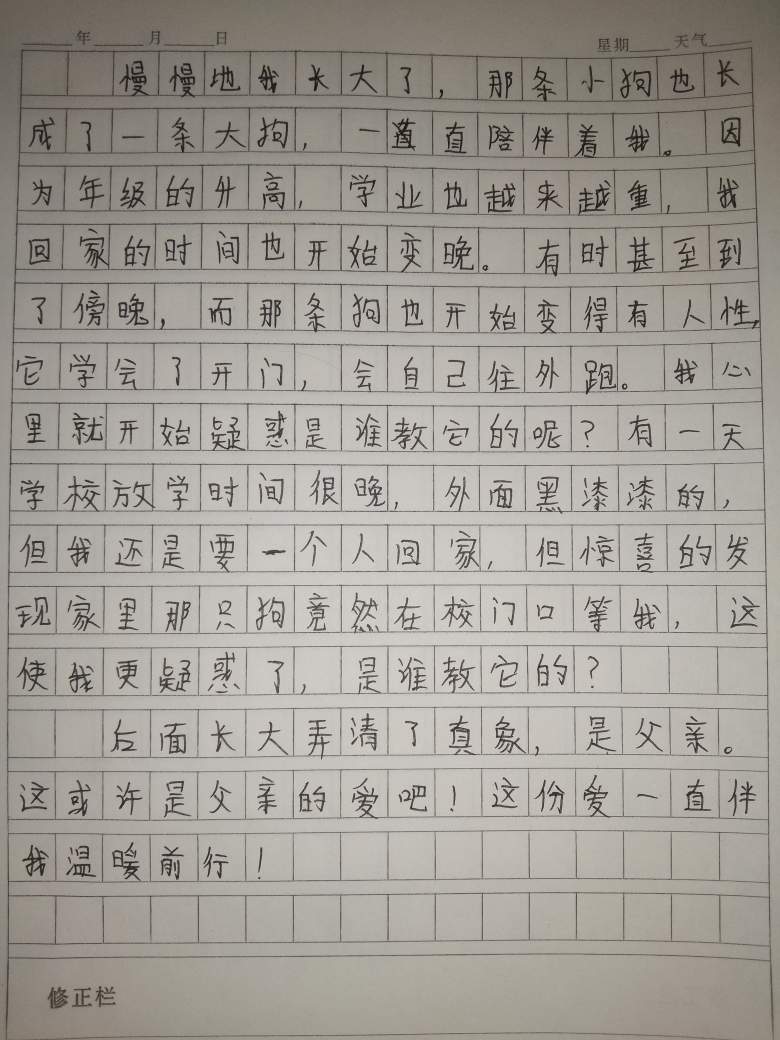 年 月 日 星期 天气
慢慢地我长大了，那条小狗也长
成了一条大狗，一直直陪伴着我。因
为年级的升高，学业也越来越重，我
回家的时间也开始变晚。有时甚至到
了傍晚，而那条狗也开始变得有人性，
它学会了开门，会自己往外跑。我心
里就开始疑惑是谁教它的呢？有一天
学校放学时间很晚，外面黑漆漆的，
但我还是要一个人回家，但惊喜的发
现家里那只狗竟然在校门口等我，这
使我更疑惑了，是谁教它的？
后面长大弄清了真象，是父亲。
这或许是父亲的爱吧！这份爱一直伴
我温暖前行！
修正栏